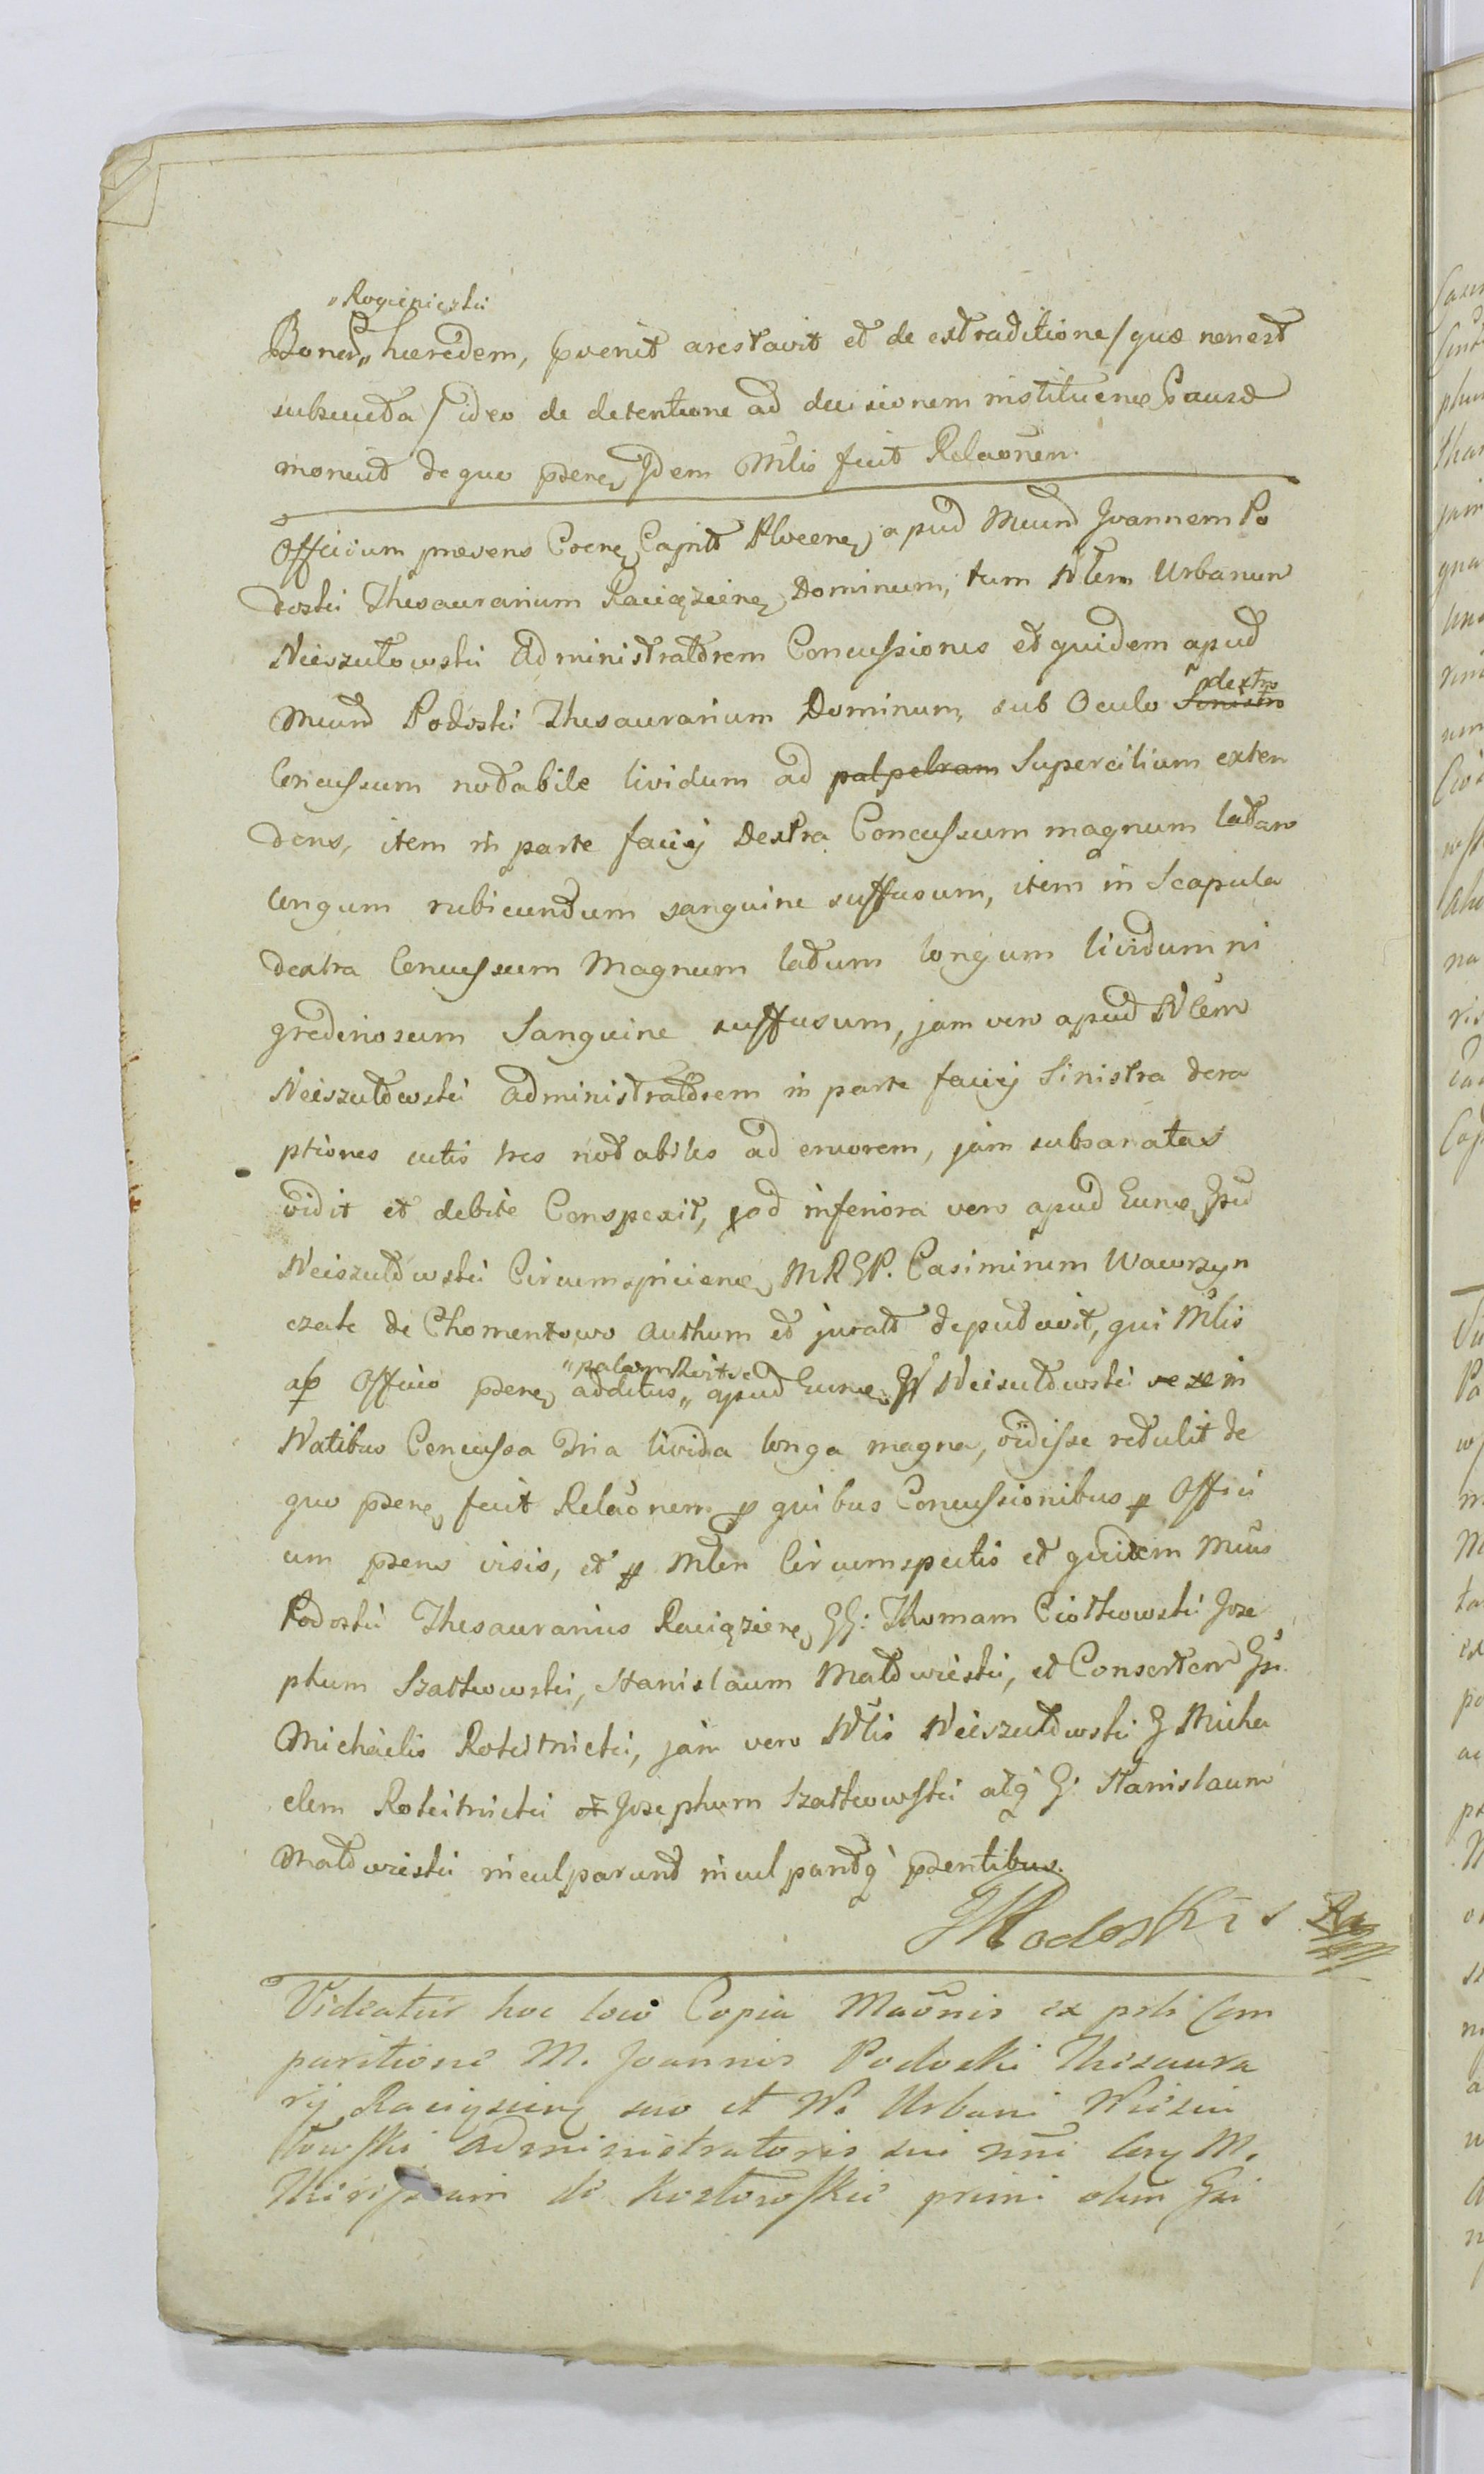 „Rogieniczki
Bonor„ hæredem, pvenit arestavit et de extraditione / quæ non est
subsecuta / ideo de detentione ad decisionem instituenæ Causæ
monuit de quo pdere Idem Mlis fecit Relaonem.
Officium præsens Capit Plocen apud Mcum Joannem Po
doski Thesaurarium Raciązien Dominum, tum Nlem Urbanum
Nieszułowski Administratorem Concussiones et quidem apud
Mcum Podoski Thesaurarium Dominum, sub Oculo Sinistro dextro
Concussum notabile lividum ad palpebram Supercilium exten
dens, item in parte faciej dextra Concussum magnum latum
longum rubicundum sanguine suffusum, item in Scapula
dextra Concussum Magnum latum longum lividum ni
gredinosum Sanguine suffusum, jam vero apud Nlem
Nieszułowski Administratorem in parte faciej Sinistra dera
ptiones cutis tres notabiles ad cruorem, jam subsanatas
vidit et debite Conspexit, ad inferiora vero apud Eund
Nieszułowski Circumspiciena MRGP. Casimirum Wawrzyn
czak de Chomentowo authum et jurat deputavit, qui Mlis
ab Officio psene additus „palam Recitse„ apud Eund Nieszułowski se se in
Natibus Concussa Tria livida longa magna, vidisse retulit de
quo psene fecit Relaonem p quibus Concussionibus p Offici
um psens visis, et p Mlem Circumspectis et quidem Mcus
Podoski Thesaurarius Raciąziene GG: Thomam Ciółkowski Jose
phum Szatkowski, Stanislaum Małowieski, et Consortem Gsi
Michaelis Rokitnicki, jam vero Nlis Nieszułowski G Micha
elem Rokitnicki et Josephum Szatkowski atq G: Stanislaum
Małowieski inculparunt inculpantq psentibus.
JPodoski
Videatur hoc loco Copia Maonis ex psli Com
paritione M. Joannis Podoski Thesaura
rij Raciązien suo et N. Urbani Nieszu
łowski Administratoris sui nni Cony M.
de Kozłowskie primi olim Gsi